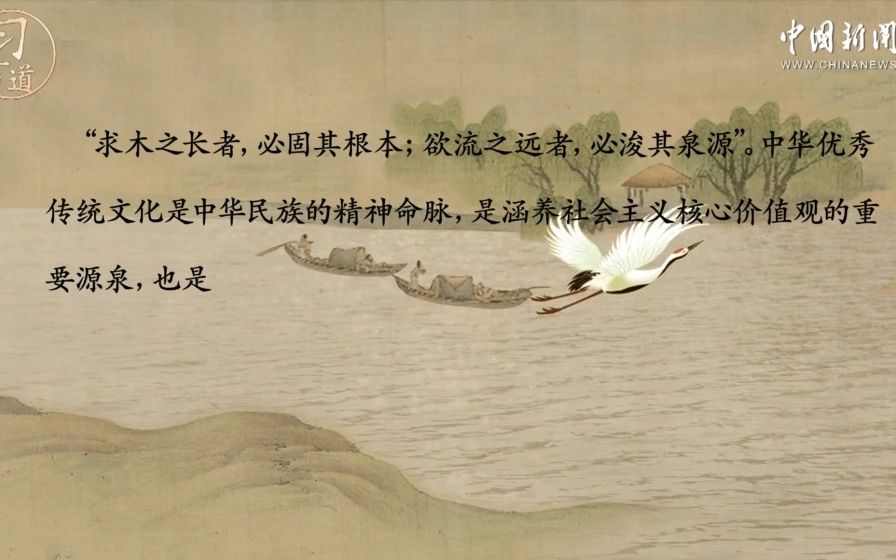 习
道
中国新闻
WWW.CHINANEWS
“求木之长者，必固其根本；欲流之远者，必浚其泉源”。中华优秀
传统文化是中华民族的精神命脉，是涵养社会主义核心价值观的重
要源泉，也是